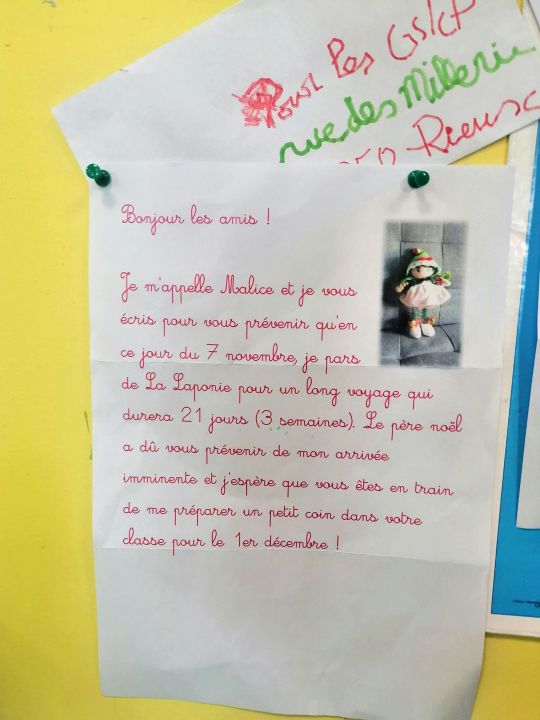 Pour les GS/CP
rue des Millerie
Rieusc
Bonjour les amis !
Je m'appelle Malice et je vous
écris pour vous prévenir qu'en
ce jour du 7 novembre, je pars
de La Laponie pour un long voyage qui
durera 21 jours (3 semaines). Le père noël
a dû vous prévenir de mon arrivée
imminente et j'espère que vous êtes en train
de me préparer un petit coin dans votre
classe pour le 1er décembre !